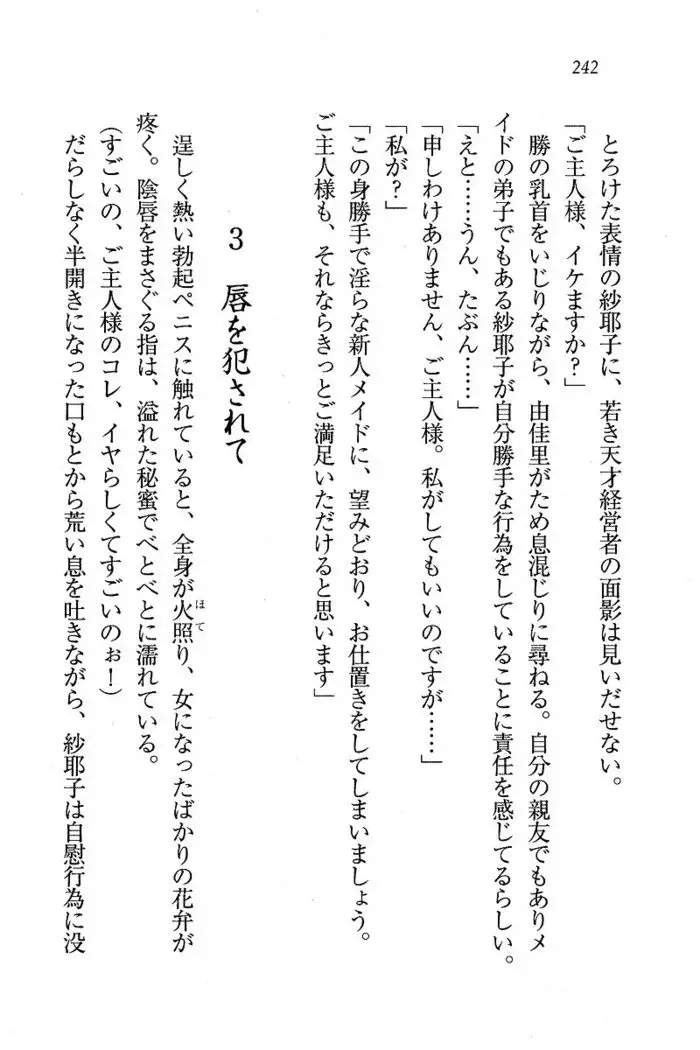 242
とろけた表情の紗耶子に、若き天才経営者の面影は見いだせない。
「ご主人様、イケますか？」
勝の乳首をいじりながら、由佳里がため息混じりに尋ねる。自分の親友でもありメ
イドの弟子でもある紗耶子が自分勝手な行為をしていることに責任を感じてるらしい。
「えと……うん、たぶん……」
「申しわけありません、ご主人様。私がしてもいいのですが……」
「私が？」
「この身勝手で淫らな新人メイドに、望みどおり、お仕置きをしてしまいましょう。
ご主人様も、それならきっとご満足いただけると思います」
3 唇を犯されて
逞しく熱い勃起ペニスに触れていると、全身が火照り、女になったばかりの花弁が
疼く。陰唇をまさぐる指は、溢れた秘蜜でべとべとに濡れている。
（すごいの、ご主人様のコレ、イヤらしくてすごいのぉ！）
だらしなく半開きになった口もとから荒い息を吐きながら、紗耶子は自慰行為に没